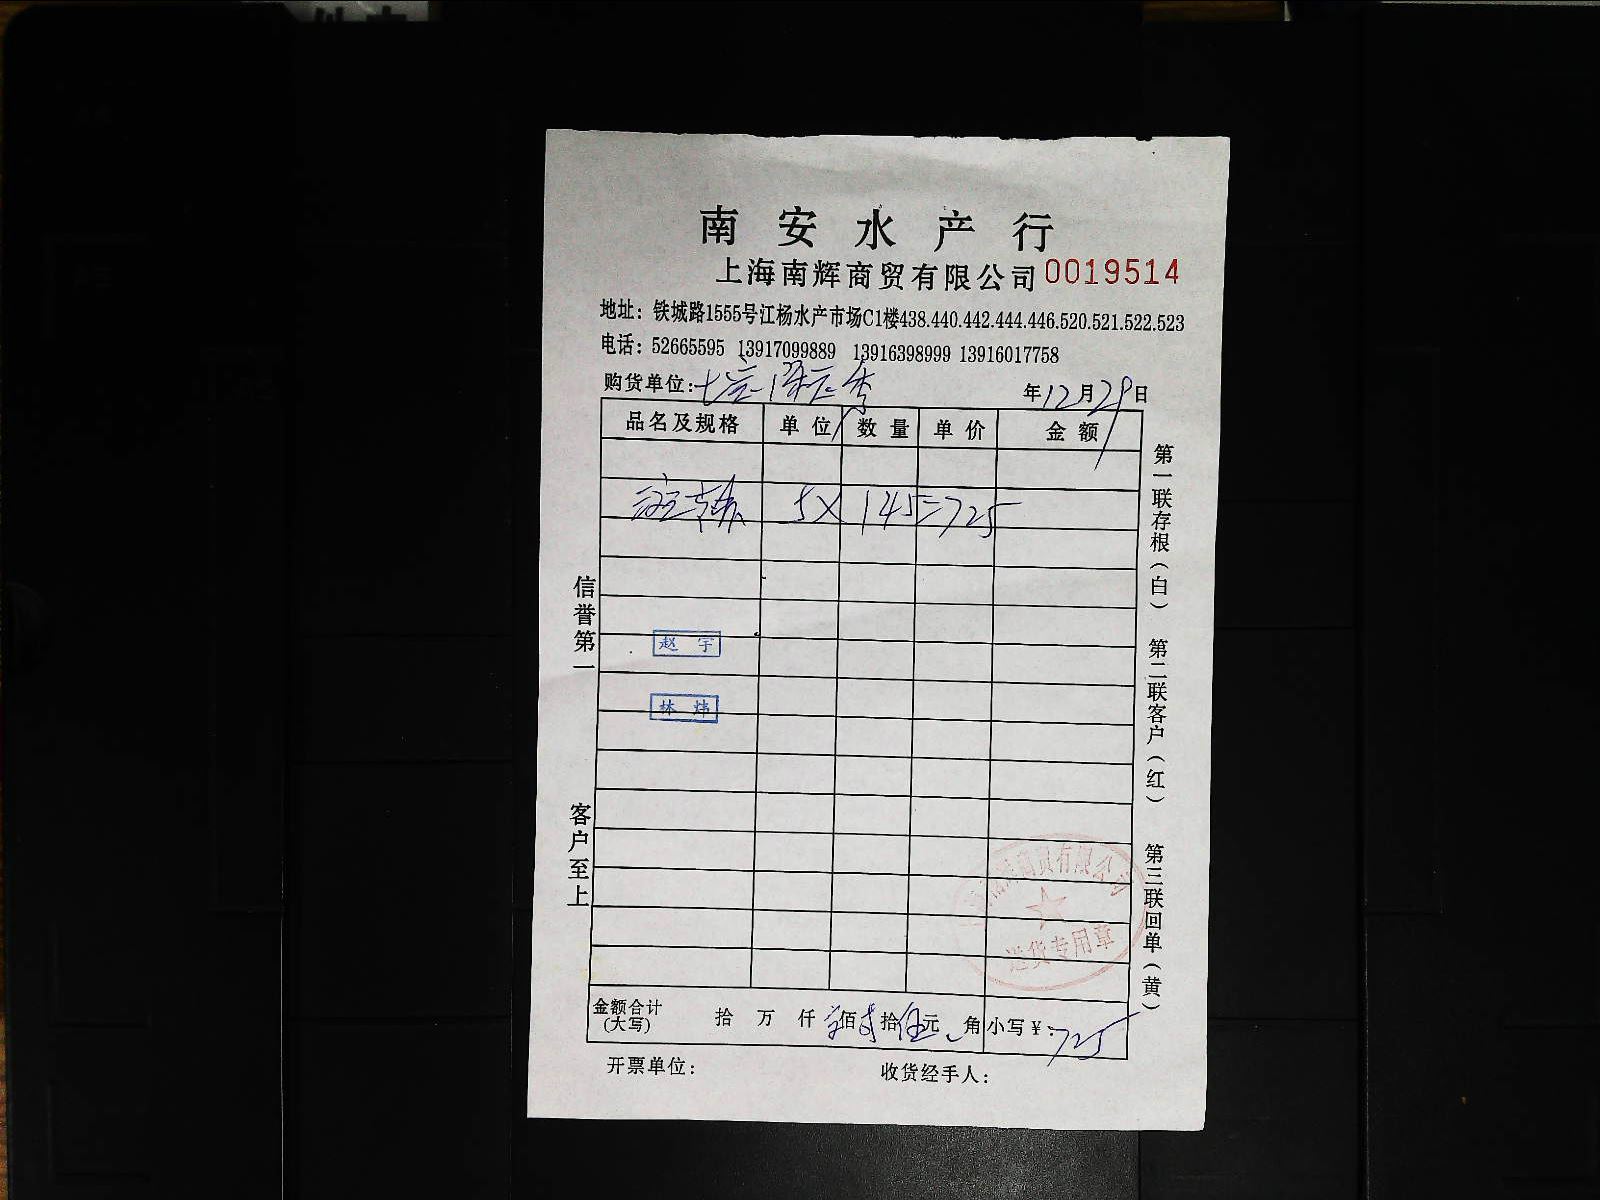 南安水产行
上海南辉商贸有限公司 0019514
地址：铁城路1555号江杨水产市场C1楼438.440.442.444.446.520.521.522.523
电话：52665595 13917099889 13916398999 13916017758
购货单位：七宝
年12月29日
品名及规格 单位 数量 单价 金额
5X 145=725
赵宇
林炜
信誉第一
客户至上
第一联存根（白） 第二联客户（红） 第三联回单（黄）
商贸有限公司
送货专用章
金额合计(大写) 拾 万 仟 佰 拾伍元 角 小写¥：725
开票单位： 收货经手人：